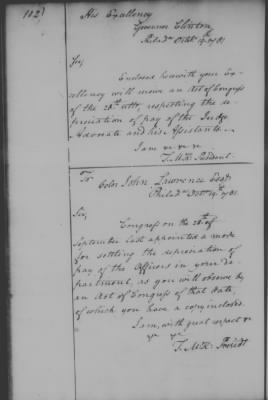 102)
His Excellency
Governor Clinton
Philada Octob 14th 1781
Sir,
Enclosed herewith your Ex-
cellency will receive an Act of Congress
of the 28th ulto, respecting the de-
preciation of pay of the Judge
Advocate and his Assistants.
I am &c &c &c
T. M:K. President.
To Colo: John Lawrence Esqr
Philada Octr 14th 1781
Sir,
Congress on the 28th of
September last appointed a mode
for settling the depreciation of
pay of the Officers in your De-
partment, as you will observe by
an Act of Congress of that date,
of which you have a copy inclosed.
I am, with great respect &c
T. M:K. Presidt